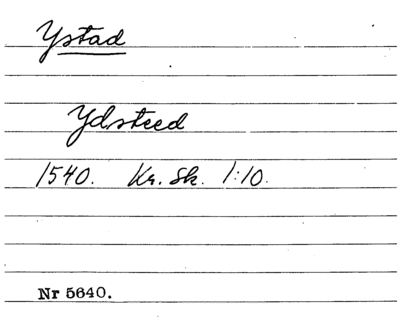 Ystad
Ydsteed
1540. Kr. Sk. 1:10.
Nr 5640.